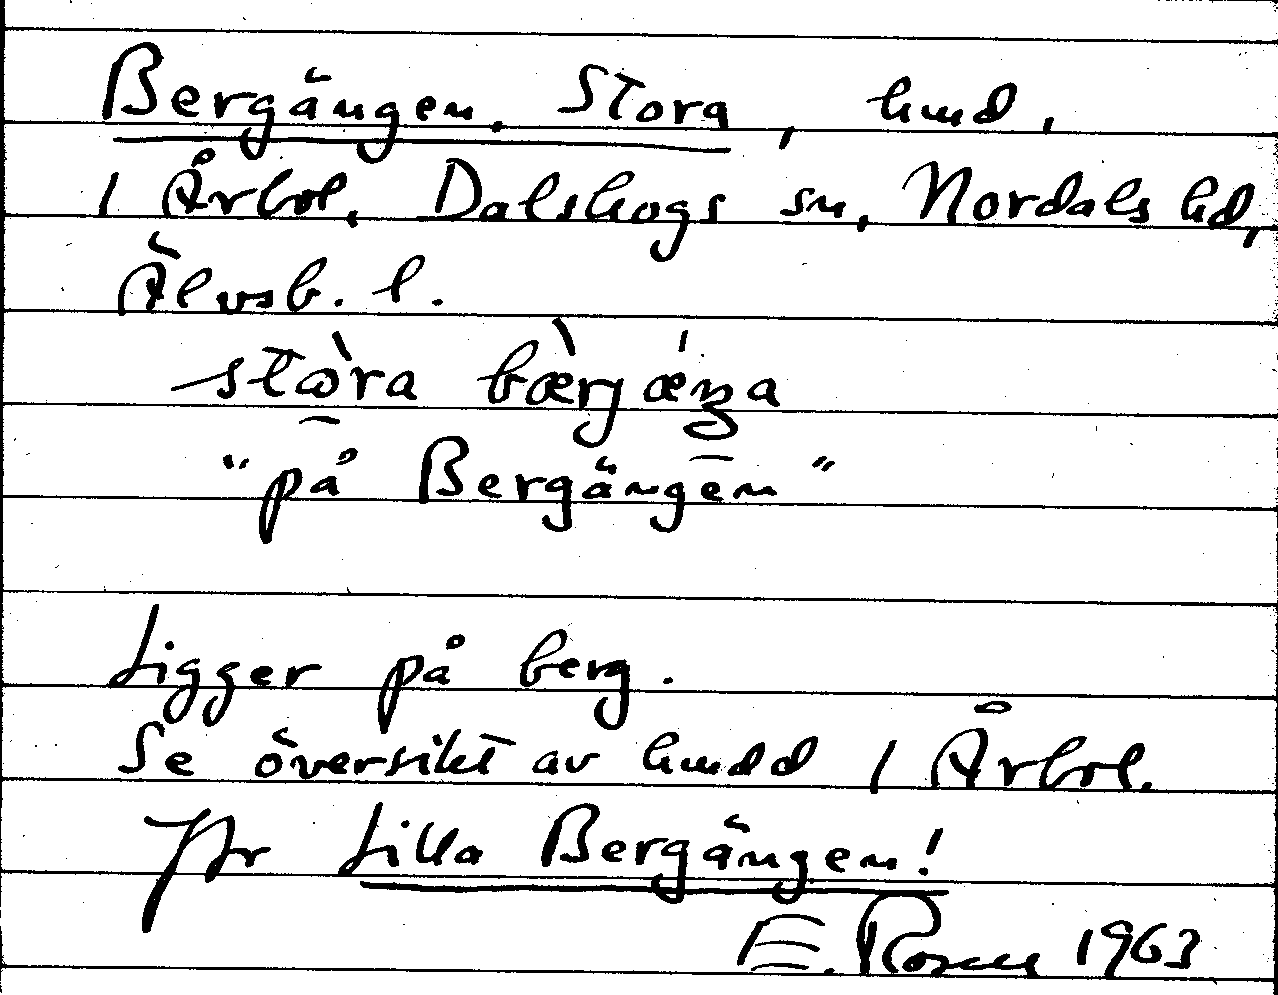 Bergängen, Stora, hmd,
i Årbol, Dalskogs sn, Nordals hd,
Älvsb. l.
stὼra bæ̀rjǽŋa
"på Bergängen"
Ligger på berg.
Se översikt av hmdd i Årbol.
Jfr Lilla Bergängen!
E. Rosen 1963